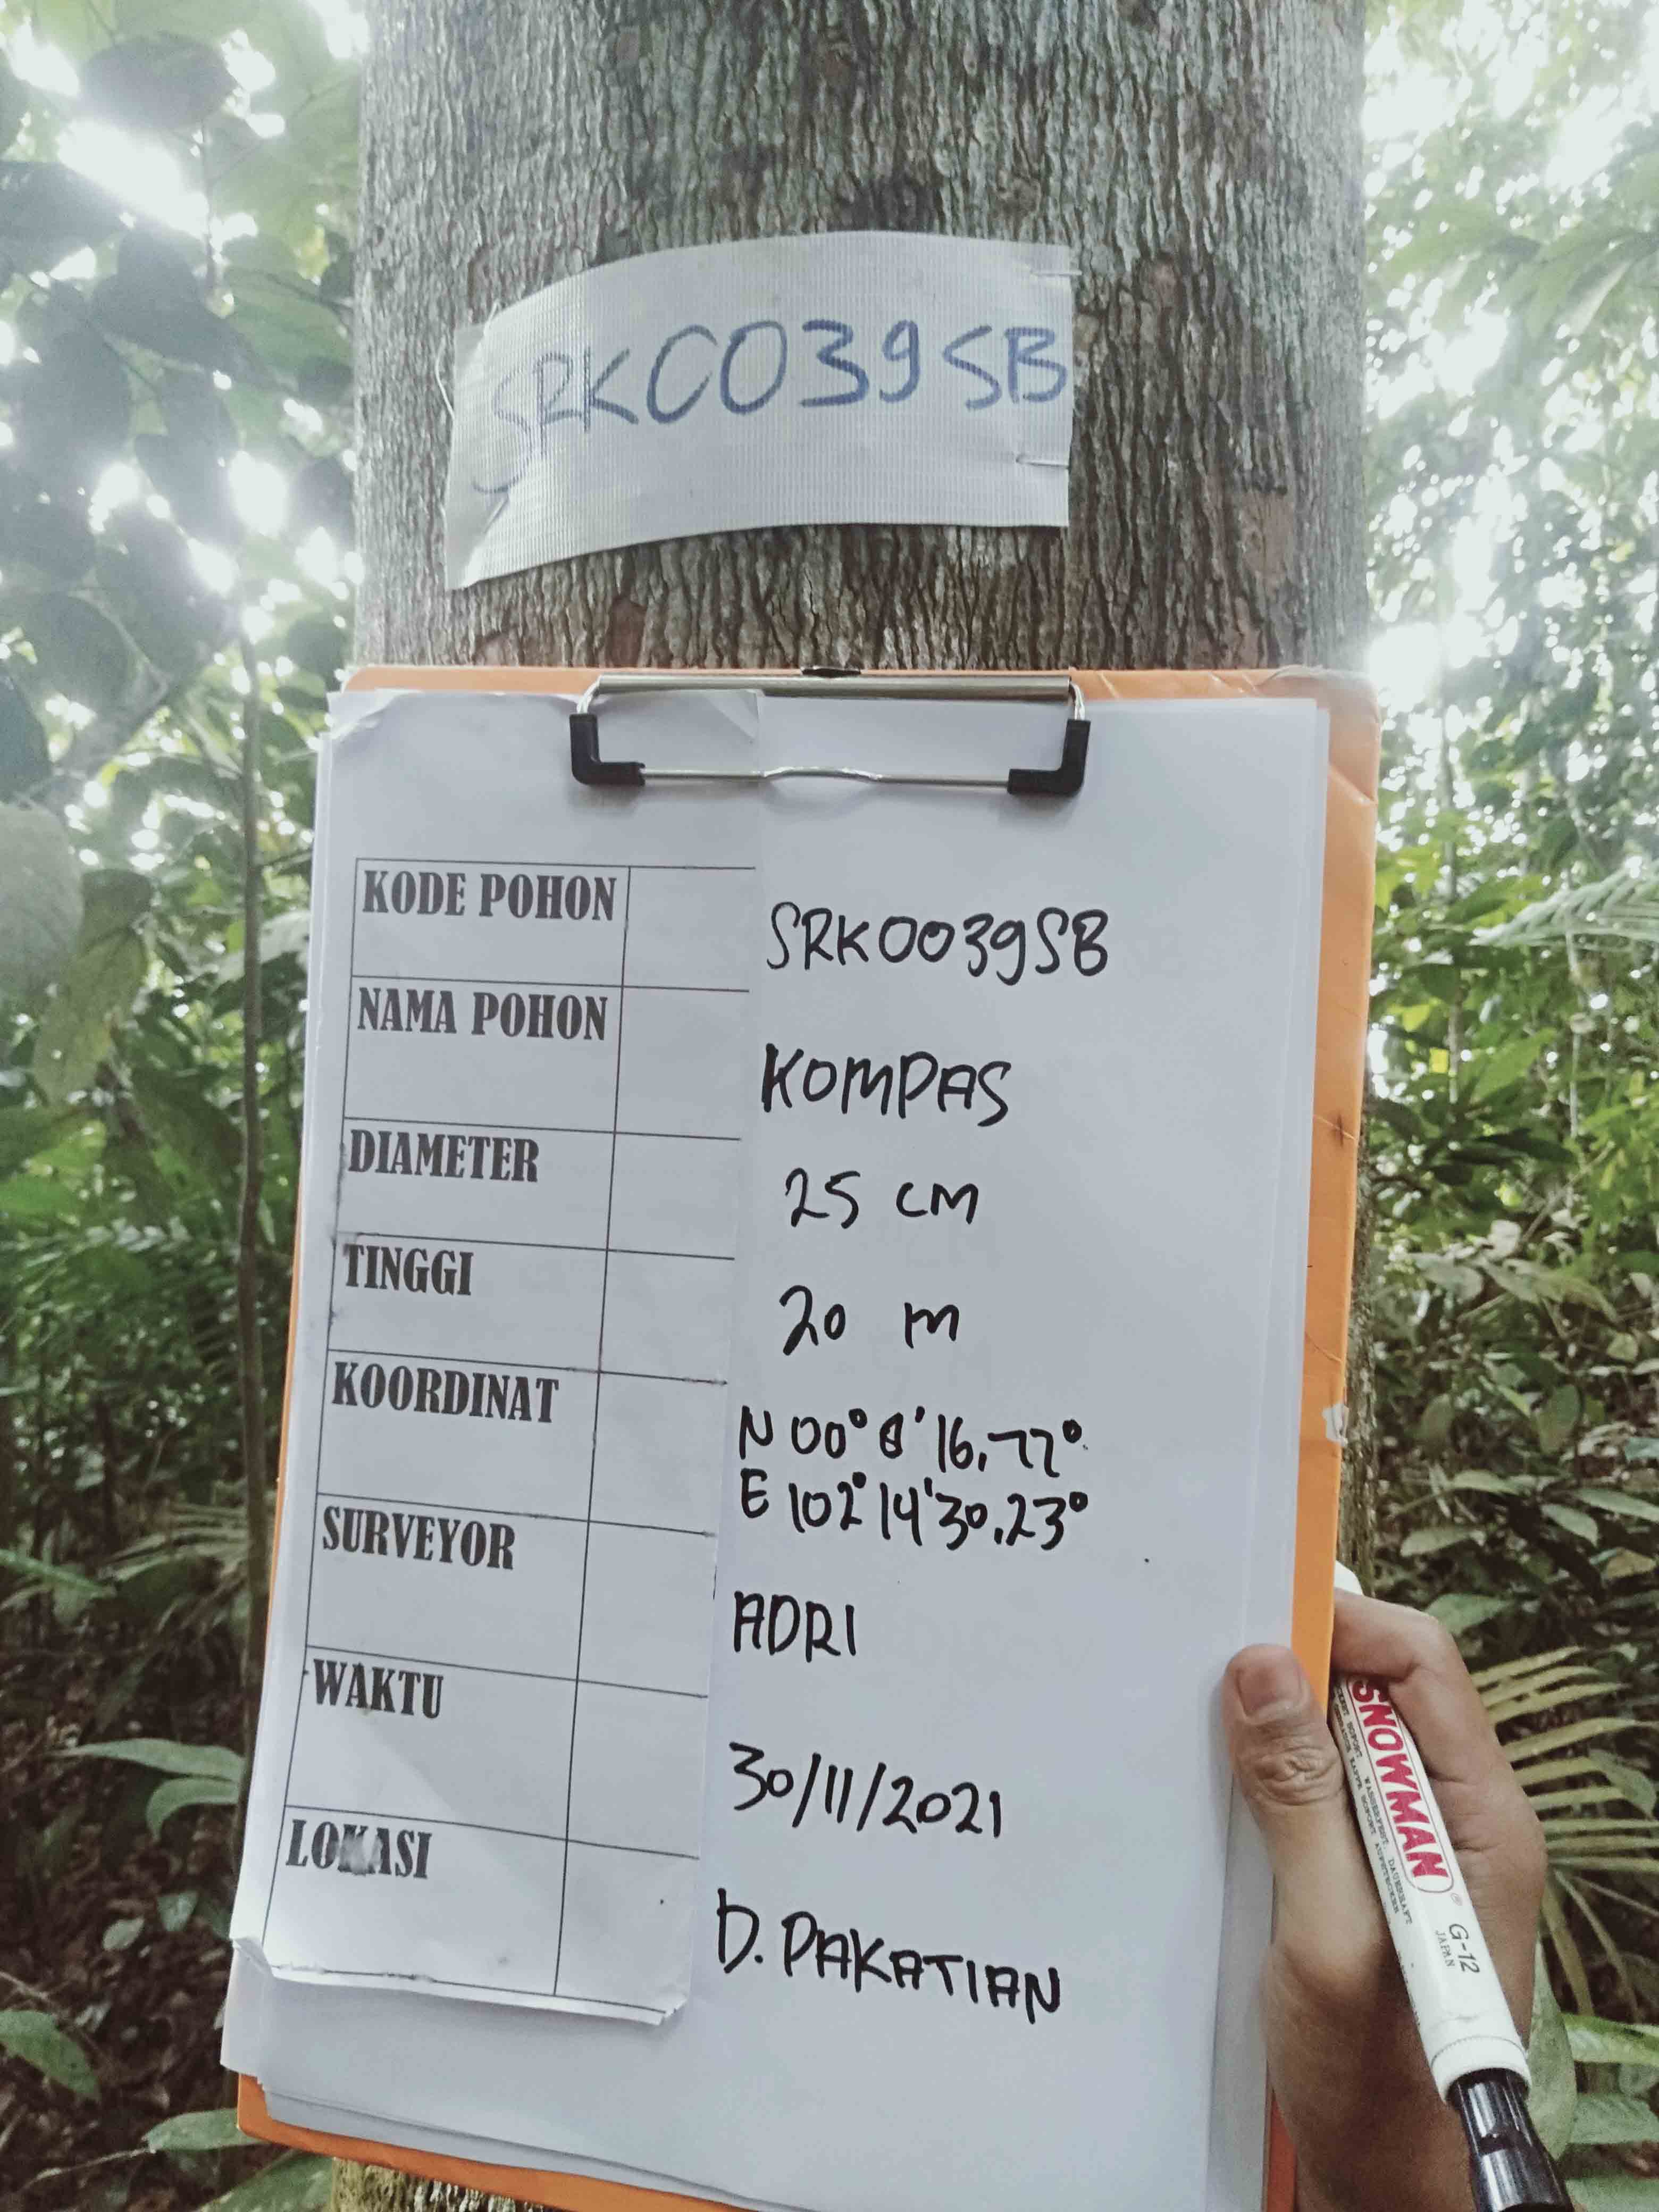 SRK0039SB
KODE POHON
SRK0039SB
NAMA POHON
KOMPAS
DIAMETER
25 CM
TINGGI
20 m
KOORDINAT
N 00° 8' 16,77°
E 102° 14' 30,23°
SURVEYOR
ADRI
WAKTU
30/11/2021
LOKASI
D. PAKATIAN
SNOWMAN
G-12
JAPAN